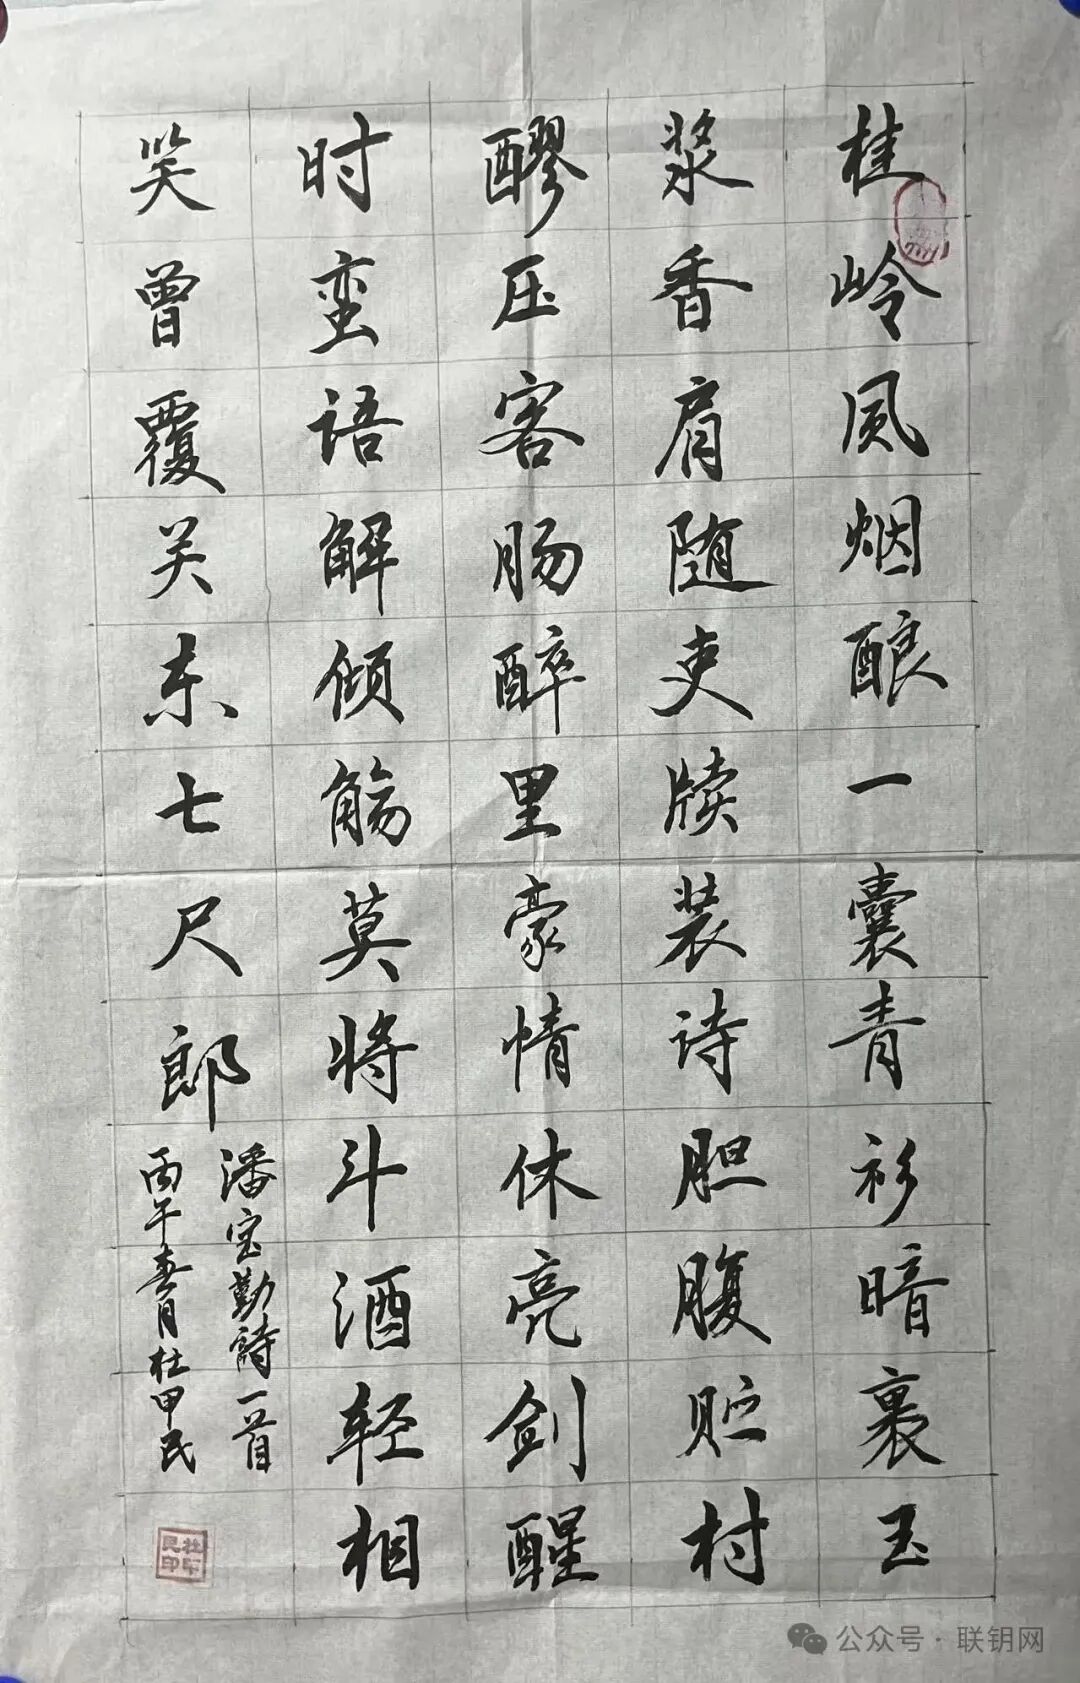 桂岭风烟酿一囊青衫暗裹玉
浆香肩随吏牍装诗胆腹贮村
醪压客肠醉里豪情休亮剑醒
时蛮语解倾觞莫将斗酒轻相
笑曾覆关东七尺郎
潘宝勤詩一首
丙午春月杜甲民
公众号·联钥网